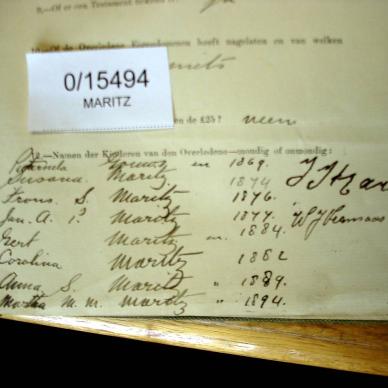 9.—Of er een Testament
10.—Of de Overledene Eigendommen heeft nagelaten en van welken
0/15494
MARITZ
de £25? neen
12.—Namen der Kinderen van den Overledene—mondig of onmondig:
1869.
Susana Maritz 1874
Frans. S. Maritz 1876.
Jan. A. P. Maritz 1877.
Gert Maritz 1884.
Carolina Maritz 1882
Anna. S. Maritz " 1889.
Martha M. M. Maritz " 1894.